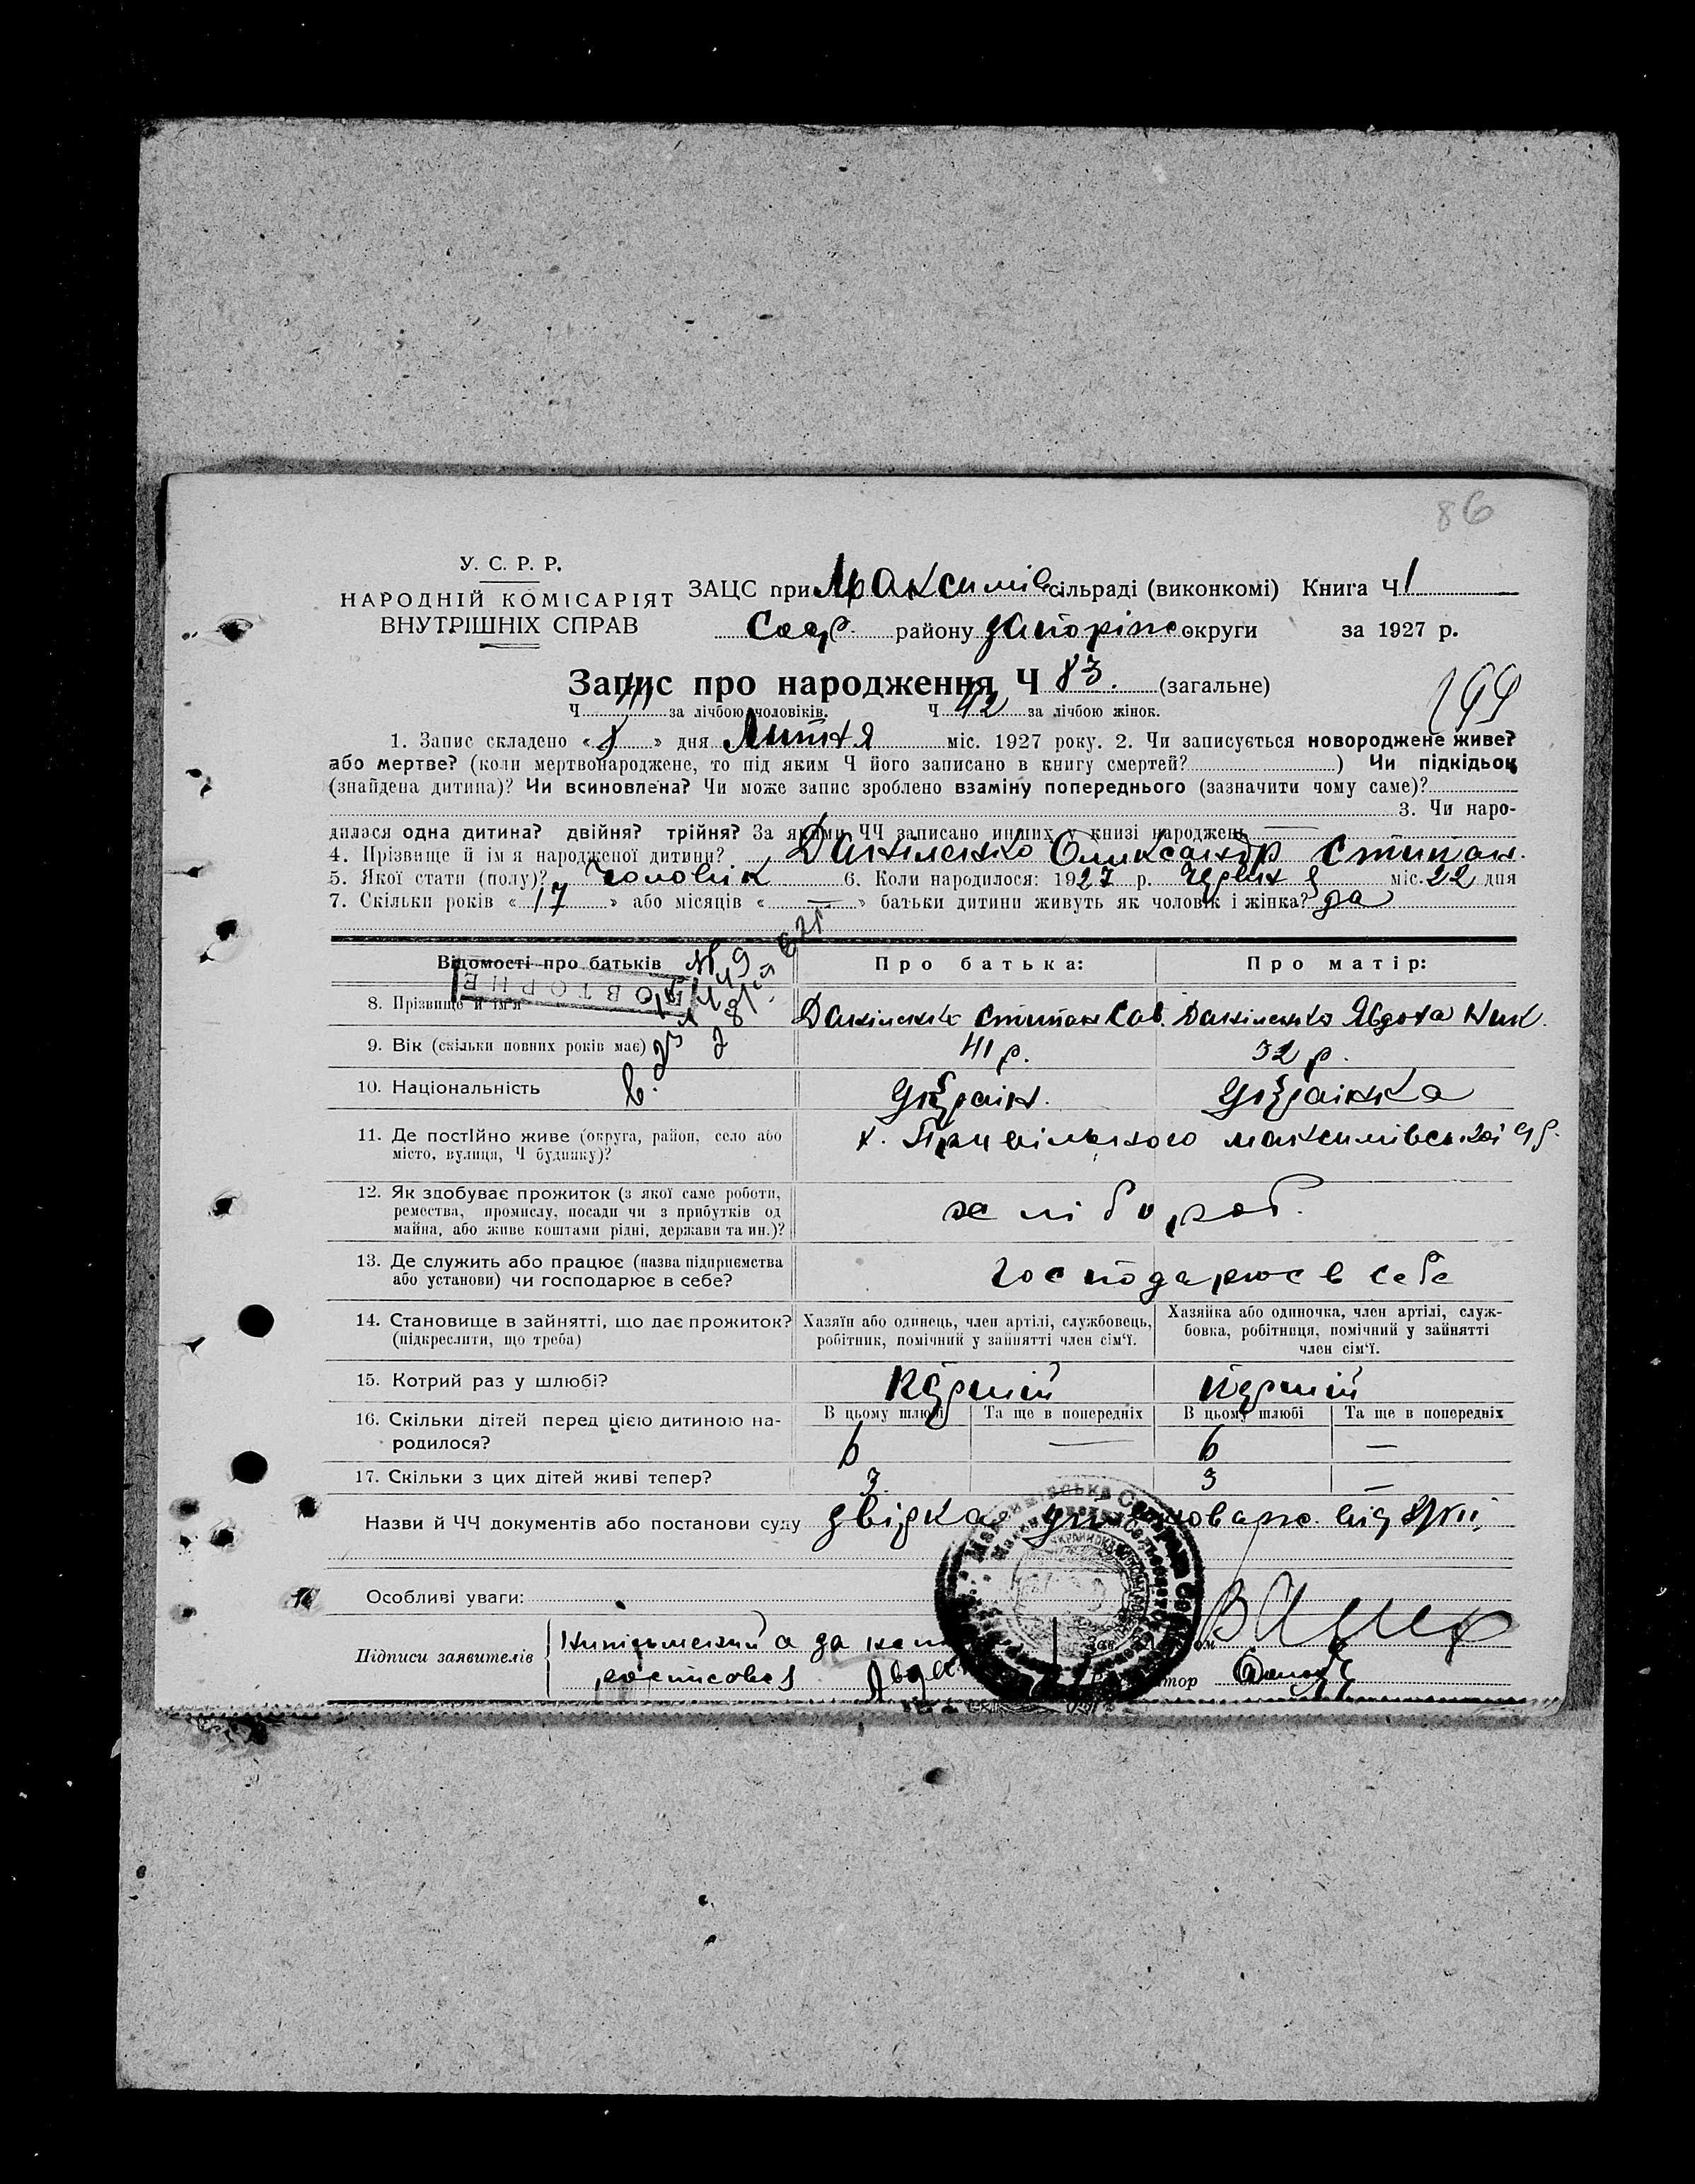 86
У. С. Р. Р.
НАРОДНІЙ КОМІСАРІЯТ
ВНУТРІШНІХ СПРАВ
ЗАЦС при Максимів сільраді (виконкомі) Книга Ч 1
району Запоріж округи за 1927 р.
Запис про народження Ч 83. (загальне)
Ч за лічбою чоловіків. Ч 42 за лічбою жінок.
1. Запис складено « 8 » дня Липня міс. 1927 року. 2. Чи записується новороджене живе?
або мертве? (коли мертвонароджене, то під яким Ч його записано в книгу смертей? ) Чи підкідьок
(знайдена дитина)? Чи всиновлена? Чи може запис зроблено взаміну попереднього (зазначити чому саме)?
3. Чи наро-
дилася одна дитина? двійня? трійня? За якими ЧЧ записано инших у книзі народжень —
4. Прізвище й ім'я народженої дитини? Даниленко Олександр Стипан.
5. Якої стати (полу)? Чоловік 6. Коли народилося: 1927 р. Червня міс. 22 дня
7. Скільки років « 17 » або місяців « — » батьки дитини живуть як чоловік і жінка? да
Відомості про батьків Про батька: Про матір:
ПОВТОРНЕ
8. Прізвище й ім'я Даніленко Стипан Сав. Даніленко Явдоха Ник.
9. Вік (скільки повних років має) 41 р. 32 р.
10. Національність Україн. Українка
11. Де постійно живе (округа, район, село або
місто, вулиця, Ч будинку)?
х. Привільного максимівської
12. Як здобуває прожиток (з якої саме роботи,
ремества, промислу, посади чи з прибутків од
майна, або живе коштами рідні, держави та ин.)?
хлібороб.
13. Де служить або працює (назва підприємства
або установи) чи господарює в себе?
господарює в себе
14. Становище в зайнятті, що дає прожиток?
(підкреслити, що треба)
Хазяїн або одинець, член артілі, службовець,
робітник, помічний у зайнятті член сім'ї.
Хазяйка або одиночка, член артілі, служ-
бовка, робітниця, помічний у зайнятті
член сім'ї.
15. Котрий раз у шлюбі? перший перший
16. Скільки дітей перед цією дитиною на-
родилося?
В цьому шлюбі Та ще в попередніх В цьому шлюбі Та ще в попередніх
6 — 6 —
17. Скільки з цих дітей живі тепер? 3 3 —
Назви й ЧЧ документів або постанови суду
Особливі уваги:
Підписи заявителів